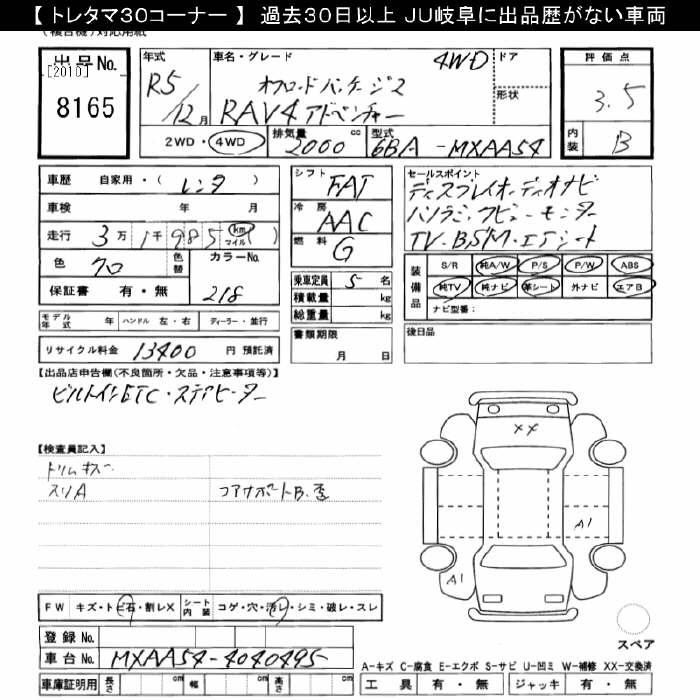 【 トレタマ30コーナー 】 過去30日以上 JU岐阜に出品歴がない車両
出品No.
[2010]
8165
年式
R5/12月
車名・グレード
オフロードパッケージ2
RAV4 アドベンチャー
4WD
ドア
形状
評価点
3.5
内装
B
2WD・4WD
排気量
2000 cc
型式
6BA-MXAA54
車歴 自家用・(レンタ)
車検 年 月
走行 3万1千985 km マイル
色 クロ
色替
カラーNo.
218
保証書 有・無
モデル年式 年 ハンドル 左・右 ディーラー・並行
リサイクル料金 13400 円 預託済
シフト FAT
冷房 AAC
燃料 G
乗車定員 5 名
積載量 kg
総重量 kg
書類期限
月 日
セールスポイント
ディスプレイオーディオナビ
パノラミックビューモニター
TV・BSM・エアシート
装備品
S/R 純A/W P/S P/W ABS
純TV 純ナビ 革シート 外ナビ エアB
ナビ型番：
後日品
【出品店申告欄(不良箇所・欠品・注意事項等)】
ビルトインETC・ステアヒーター
【検査員記入】
トリムキズ
スリA
コアサポートB.歪
XX
A1
A1
FW キズ・トビ石・割レX
シート内装 コゲ・穴・汚レ・シミ・破レ・スレ
登録No.
車台No. MXAA54-4040495
車庫証明用 長さ 幅 高さ
スペア
A-キズ C-腐食 E-エクボ S-サビ U-凹ミ W-補修 XX-交換済
工具 有・無 ジャッキ 有・無